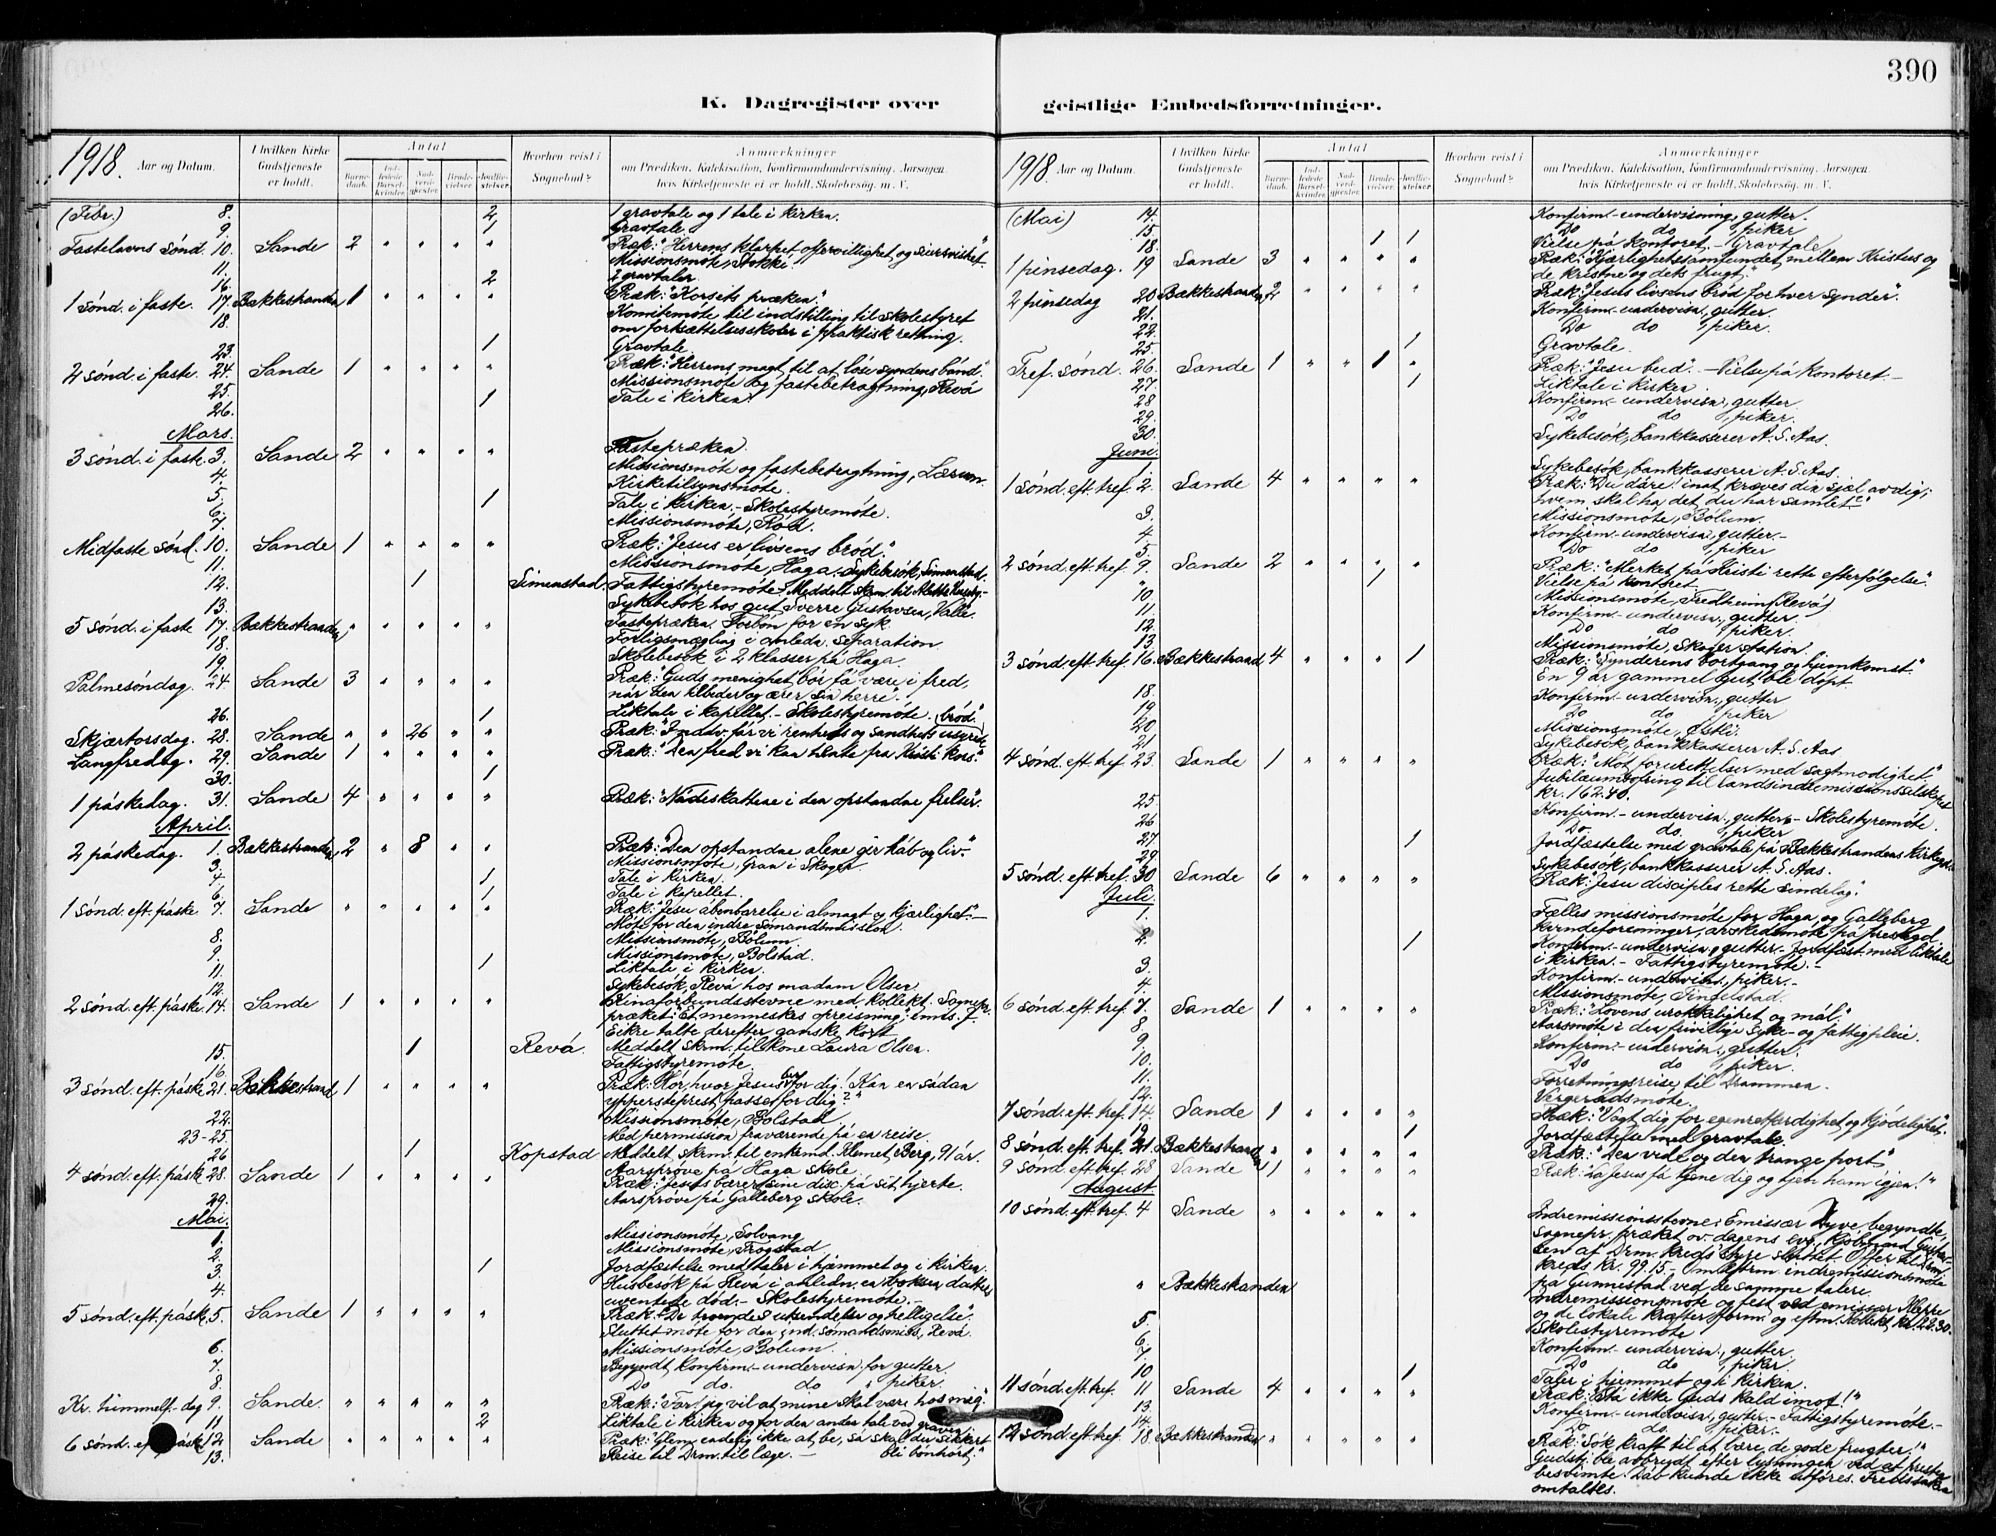 390
K. Dagregister over geistlige Embedsforretninger.
1918. Aar og Datum.
I hvilken Kirke Gudstjeneste er holdt.
Antal
Barnedaab.
Indledede Barselkvinder.
Nadverdgjester.
Brudevielser.
Jordfæstelser.
Hvorhen reist i Sognebud?
Anmærkninger
om Prædiken, Katekisation, Konfirmandundervisning. Aarsagen,
hvis Kirketjeneste ei er holdt, Skolebesøg, m. V.
(Febr.) 8. 2 1 gravtale og 1 tale i kirken.
9. 1 Gravtale
Fastelavns sønd. 10. Sande 2 " " " " Præk: "Herrens klarhet, offervillighet og seiersvished."
11. Missionsmöte, Stokke.
16. 2 2 gravtaler
1 sønd. i faste. 17. Bækkestranden 1 " " " " Præk: "Korsets præken."
18. Komitemöte til indstilling til skolestyret
om fortsættelsesskoler i praktisk retning.
23. 1 Gravtale
2 sønd. i faste. 24. Sande 1 " " " " Præk: "Herrens magt til at löse syndens bånd."
25. Missionsmöte og fastebetragtning, Revå
26. 1 Tale i kirken.
Mars.
3 sønd. i faste. 3. Sande 2 " " " " Fastepræken.
4. Missionsmöte og fastebetragtning, Lærum.
5. Kirketilsynsmöte.
6. 1 Tale i kirken. - Skolestyremöte.
7. Missionsmöte, Röd.
Midfaste sønd. 10. Sande 1 " " " " Præk: "Jesus er livsens bröd."
11. Missionsmöte, Haga. Sykebesök, Simenstad.
12. 1 Simenstad Fattigstyremöte. Meddelt skrm. til
13. Sykebesök hos gut Sverre Gustavsen, Valle.
5 sønd. i faste 17. Bækkestranden " " " " " Fastepræken. Forbön for en syk
18. Forligsmægling i anledn. separation
19. Skolebesök i 2 klasser på Haga.
Palmesöndag. 24. Sande 3 " " " " Præk: "Guds menighet bör få være i fred,
når den tilbeder og ærer sin herre".
26. 1 Liktale i kapellet. - Skolestyremöte.
Skjærtorsdag. 28. Sande " " 26 " " Præk: "Indtv. før vi renheds og sandheds usyrede bröd."
Langfredag. 29. Sande 1 " " " " Præk: "Den fred vi kan hente fra Kristi kors."
30. 1
1 påskedag. 31. Sande 4 " " " " Præk: "Nådeskattene i den opstandne frelser."
April.
2 påskedag. 1. Bækkestranden 2 " 8 " " Præk: "Den opstandne alene gir håb og liv."
3. Missionsmöte, Gran i Skoger
4. 1 Tale i kirken.
6. 1 Tale i kapellet.
1 sønd. eft. påske 7. Sande " " " " " Præk: "Jesu åbenbarelse i almagt og kjærlighet." -
Möte for den indre sömandsmission.
8. Missionsmöte, Bölum.
9. Missionsmöte, Bolstad.
11. 1 Liktale i kirken.
12. Sykebesök, Revå hos madam Olsen
2 sønd. eft. påske. 14. Sande 1 " " " " Kinaforbundsstevne med kollekt. Sognepr.
præket: "Et menneskes opreisning"; emis. J.
Eikre talte derefter ganske kort
15. 1 Revå. Meddelt skrm. til kone Laura Olsen.
16. Fattigstyremöte.
3 sønd. eft. påske 21. Bækkestrand 1 " " " " Præk: "Hör, hvor Jesus ber for dig! Kan en sådan
ypperstepræst passe for dig?"
22. Missionsmöte, Bolstad
23-25. Med permission fraværende på en reise.
26 1 Kopstad Meddelt skrm. til enkemd. Klemet Berg, 91 år.
4 sønd. eft. påsk. 28. Sande 1 " " " " Aarspröve på Haga skole.
Præk: "Jesus bærer sine disc. på sit hjerte.
29. Aarspröve på Galleberg skole.
Mai.
1. Missionsmöte, Solvang
2. Missionsmöte, Trogstad
3. 1 Jordfæstelse med taler i hjemmet og i kirken.
4. Husbesök på Revå i anledn. en voksen datters
uventede död. - Skolestyremöte. -
5 sønd. eft. påsk. 5. Sande 1 " " " " Præk: "De troendes utsendelse og helligelse".
Sluttet möte for den ind. sömandsmiss, Revå
6. Missionsmöte, Bölum.
7. Begyndt konfirm.-undervisn. for gutter
8. Do do. do " piker.
Kr. himmelf.-dag 9. Sande. " " " " " Præk: "Far! jeg vil at mine skal være hos mig."
11. 2 Liktale i kirken og for den anden tale ved graven
6 sønd. eft. påske 12. Sande " " " " " Præk: "Glem endelig ikke at be, så skal du sikkert bli bönhört."
13. Reise til Drm. til læge. -
1918. Aar og Datum.
I hvilken Kirke Gudstjeneste er holdt.
Antal
Barnedaab.
Indledede Barselkvinder.
Nadverdgjester.
Brudevielser.
Jordfæstelser.
Hvorhen reist i Sognebud?
Anmærkninger
om Prædiken, Katekisation, Konfirmandundervisning. Aarsagen,
hvis Kirketjeneste ei er holdt, Skolebesøg, m. V.
(Mai) 14. Konfirm.-undervisning, gutter.
15. Do do , piker
18. 1 1 Vielse på kontoret. - Gravtale
1 pinsedag. 19 Sande 3 " " " " Præk: "Kjærlighetssamfundet mellem Kristus og
de kristne og dets frugt."
2 pinsedag 20 Bækkestranden 2 " " " " Præk: "Jesus livsens bröd for hver synder".
21. Konfirm.-undervisn., gutter.
22. Do do , piker.
25. 1 Gravtale.
Tref. sönd. 26. Sande 1 " " 1 " Præk: "Jesu bud". - Vielse på kontoret. -
27. 1 Liktale i kirken
28 Konfirm.-undervisn., gutter
29. Do do , piker.
30. Sykebesök, bankkasserer A. S. Aas.
Juni.
1. Sykebesök, bankkasserer A. S. Aas.
1 sønd. eft. tref. 2. Sande 4 " " " " Præk: "Du dåre! inat kræves din sjæl av dig;
hvem skal ha det, du har samlet?"
3. Missionsmöte, Bölum.
4. Konfirm.-undervisn., gutter. -
5. Do do , piker
2 sønd. eft. tref. 9. Sande 2 " " " " Præk: "Merket på Kristi rette efterfölgelse".
1 Vielse på kontoret.
10. Missionsmöte, Fredheim (Revå)
11. Konfirm.-undervisn., gutter.
12. Do do , piker.
13. Missionsmöte, Skoger station.
3 sønd. eft. tref. 16. Bækkestrand 4 " " " 1 Præk: "Synderens bortgang og hjemkomst."
En 9 år gammel gut ble döpt.
18. Konfirm.-undervisn., gutter
19 Do do , piker
20 Missionsmöte, Östli.
21 Sykebesök, bankkasserer A. S. Aas
4 sønd. eft. tref. 23. Sande 1 " " " " Præk: "Möt forurettelser med sagtmodighet."
Jubilæumsofring til landsindremissionsselskapet
kr. 162.70.
25 Konfirm.-undervisn., gutter. - Skolestyremöte.
26 Do. do. , piker
27 1 Jordfæstelse med gravtale på Bækkestrandens kirkegård.
29. Sykebesök, bankkasserer A. S. Aas.
5 sønd. eft. tref. 30 Sande 6 " " " " Præk: "Jesu disciples rette sindelag."
Juli.
1. Fælles missionsmöte for Haga og Galleberg
kvindeforeninger, avskedsmöte på prestegd.
2. 1 Konfirm.-undervisn., gutter. - Jordfæst. med liktale
i kirken. - Fattigstyremöte. -
3. Konfirm.-undervisn., piker. -
4. Missionsmöte, Tindelstad.
6 sønd. eft. tref. 7. Sande 1 " " " " Præk: "Lovens urokkelighet og mål."
8 Aarsmöte i den frivillige syke- og fattigpleie.
9. Konfirm.-undervisn., gutter.
10. Do do , piker.
11. Forretningsreise til Drammen.
12. Vergerådsmöte.
7 sønd. eft. tref. 14. Sande 1 " " " " Præk: "Vogt dig for egenretfærdighet og kjödelighet".
19. 1 Jordfæstelse med gravtale.
8 sønd. eft. tref. 21. Bækkestranden " " " " " Præk: "Den vide og den trange port"
9 sønd. eft. tref. 28 Sande 1 " " " " Præk: "La Jesus få tjene dig og tjen ham igjen!"
August
10 sønd. eft. tref. 4 Sande " " " " " Indremissionsstevne: Emissær Dyve begyndte,
sognepr. præket ov. dagens evg.,
kreds kr. 99.15 -
" Bækkestranden på Gunnestad ved de samme talere.
5. Indremissionsmöte og fest ved emissær Herre
og de lokale kræfter form. og eftm. Kollekt kr. 22.30.
6. Skolestyremöte
7. Konfirm.-undervisn., gutter.
Do do , piker.
10 1 Taler i hjemmet og i kirken.
11 sønd. eft. tref. 11 Sande 4 " " " " Præk: "Stå ikke Guds kald imot!"
13. Konfirm.-undervisn., gutter. - Fattigstyremöte. -
14. Do do. , piker. -
12 sønd. eft. tref. 18. Bækkestranden " " " " " Præk: "Sök kraft til at bære de gode frugter!"
Gudstj. ble avbrudt efter lysningen ved at presten
besvimte. Dåb kunde ikke utföres.
omtaltes.